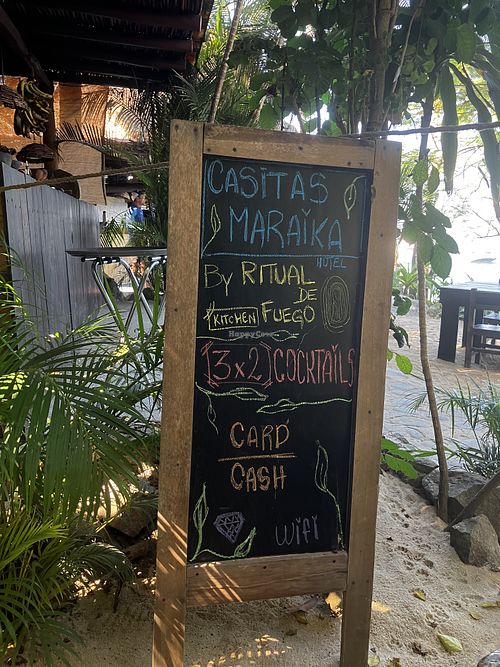 CASITAS
MARAÏKA
HOTEL
By RITUAL
DE
KITCHEN FUEGO
HappyCow
(3x2) COCKTAILS
CARD
CASH
WIFI